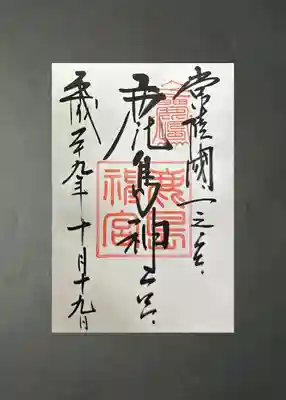 常陸國一之宮
鹿島神宮
平成二十九年十月十九日
鹿島神宮